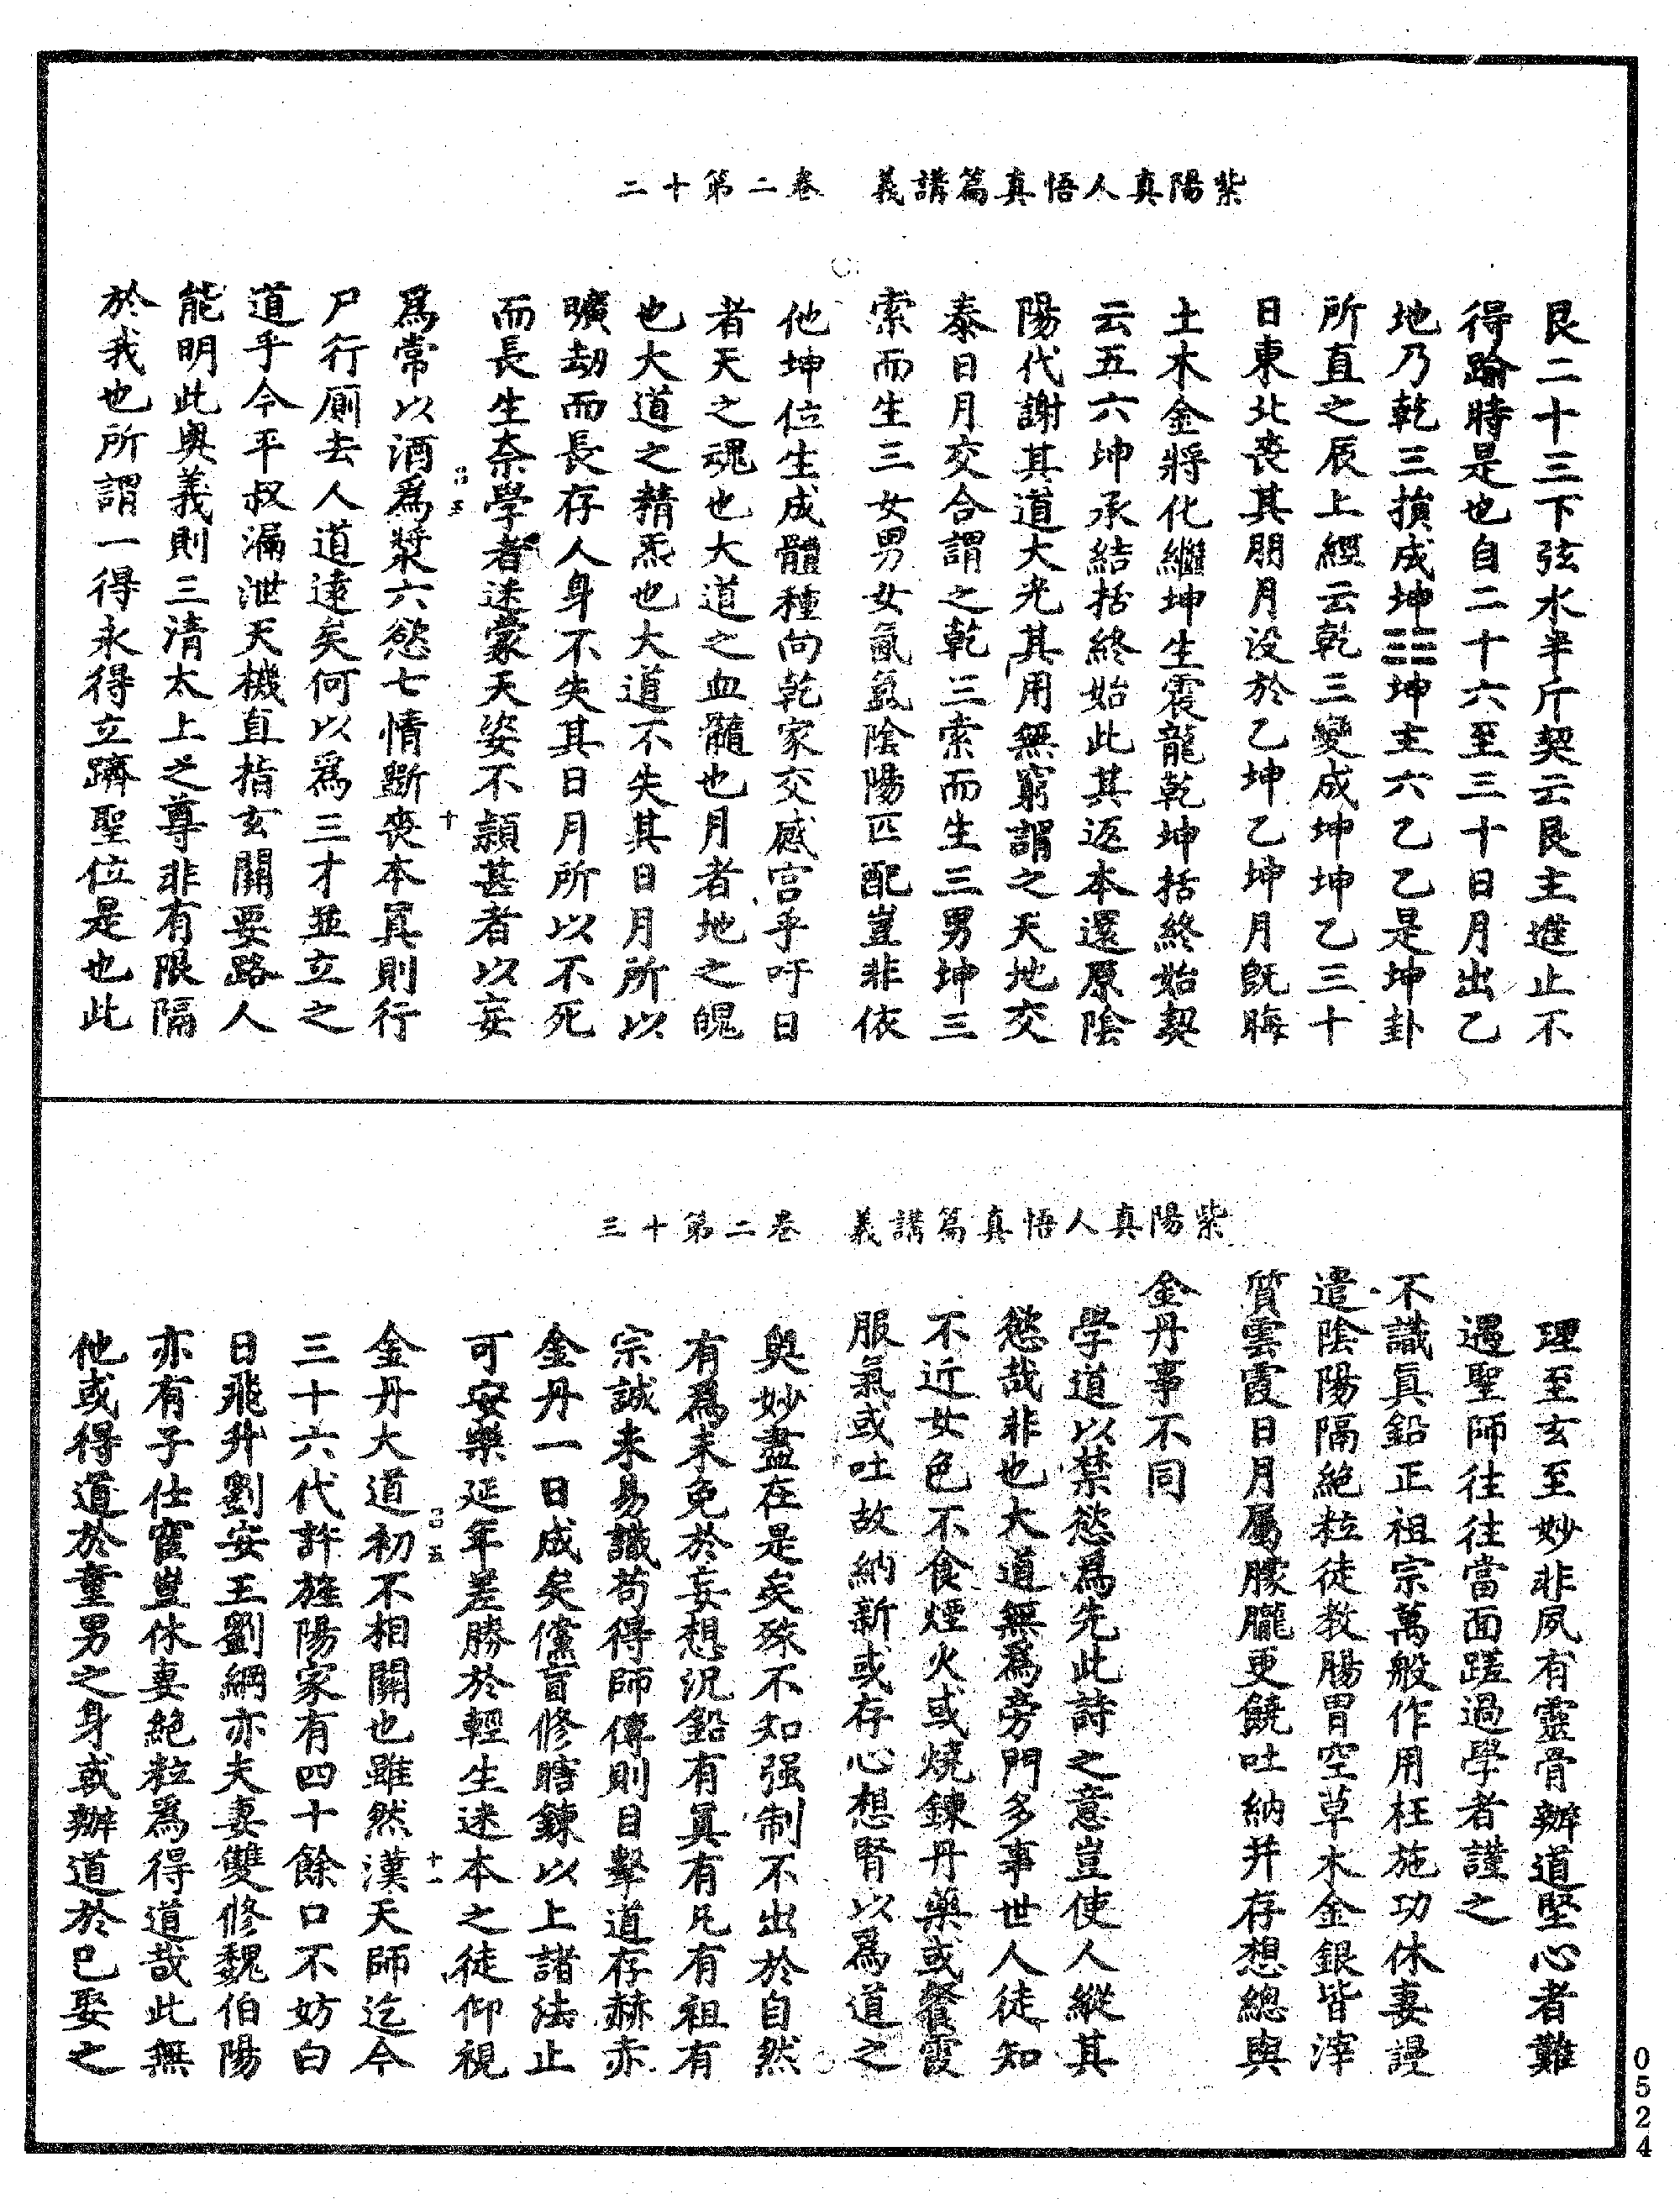 紫陽真人悟真篇講義　卷二第十二
艮二十三下弦水半斤契云艮主進止不
得踰時是也自二十六至三十日月出乙
地乃乾三損成坤☷坤主六乙乙是坤卦
所直之辰上經云乾三變成坤坤乙三十
日東北喪其朋月没於乙坤乙坤月旣晦
土木金將化繼坤生震龍乾坤括終始契
云五六坤承結括終始此其返本還原陰
陽代謝其道大光其用無窮謂之天地交
泰日月交合謂之乾三索而生三男坤三
索而生三女男女氤氳陰陽匹配豈非依
他坤位生成體種向乾家交感宫乎吁日
者天之魂也大道之血髓也月者地之魄
也大道之精炁也大道不失其日月所以
曠劫而長存人身不失其日月所以不死
而長生奈學者迷蒙天姿不頴甚者以妄
爲常以酒爲漿六慾七情斲喪本真則行
尸行厠去人道遠矣何以爲三才並立之
道乎今平叔漏泄天機直指玄關要路人
能明此奥義則三清太上之尊非有限隔
於我也所謂一得永得立躋聖位是也此
紫陽真人悟真篇講義　卷二第十三
理至玄至妙非夙有靈骨辦道堅心者難
遇聖師往往當面蹉過學者謹之
不識真鉛正祖宗萬般作用枉施功休妻謾
遣陰陽隔絶粒徒教腸胃空草木金銀皆滓
質雲霞日月屬朦朧更饒吐納并存想總與
金丹事不同
學道以禁慾爲先此詩之意豈使人縱其
慾哉非也大道無爲旁門多事世人徒知
不近女色不食煙火或燒鍊丹藥或餐霞
服氣或吐故納新或存心想腎以爲道之
奥妙盡在是矣殊不知强制不出於自然
有爲未免於妄想況鉛有真有凡有祖有
宗誠未易識苟得師傳則目擊道存赫赤
金丹一日成矣儻盲修瞎鍊以上諸法止
可安樂延年差勝於輕生迷本之徒仰視
金丹大道初不相關也雖然漢天師迄今
三十六代許旌陽家有四十餘口不妨白
日飛升劉安王劉綱亦夫妻雙修魏伯陽
亦有子仕宦豈休妻絶粒爲得道哉此無
他或得道於童男之身或辦道於巳娶之
0524